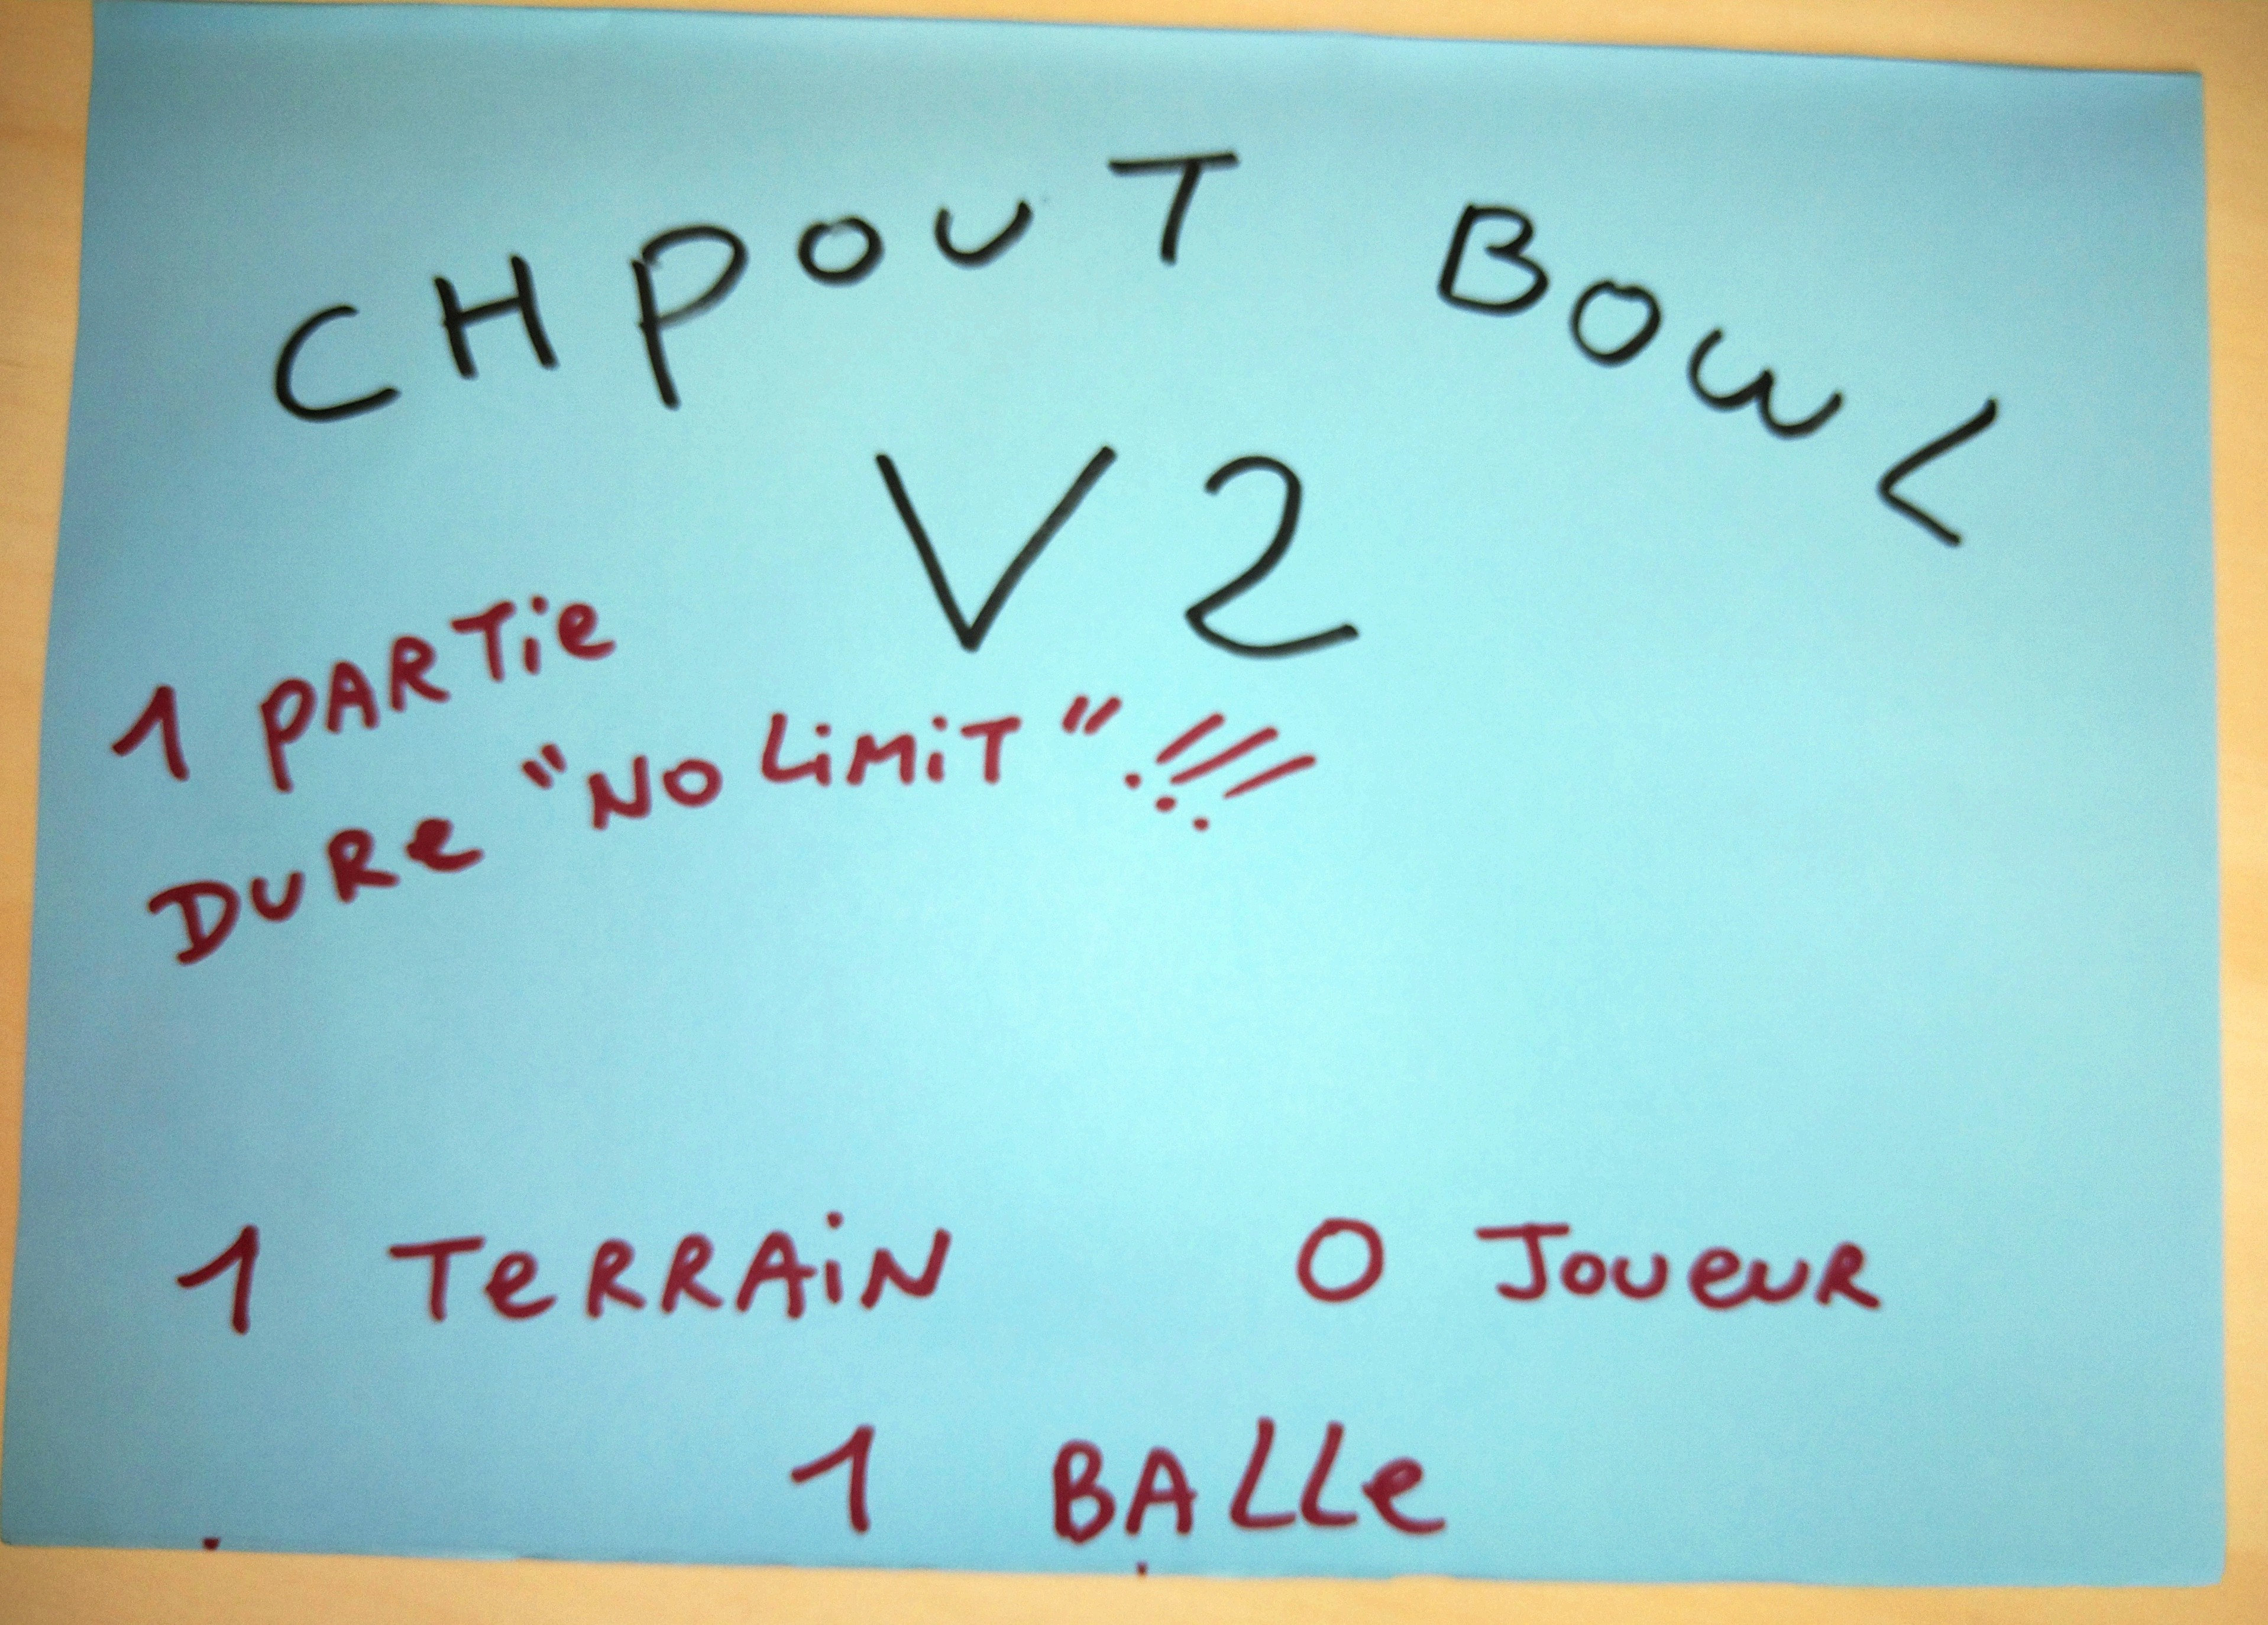 CHPOUT BOWL
V2
1 PARTie
DURe "NO LiMiT" !!!
1 TeRRAiN 0 JoueuR
1 BALLe